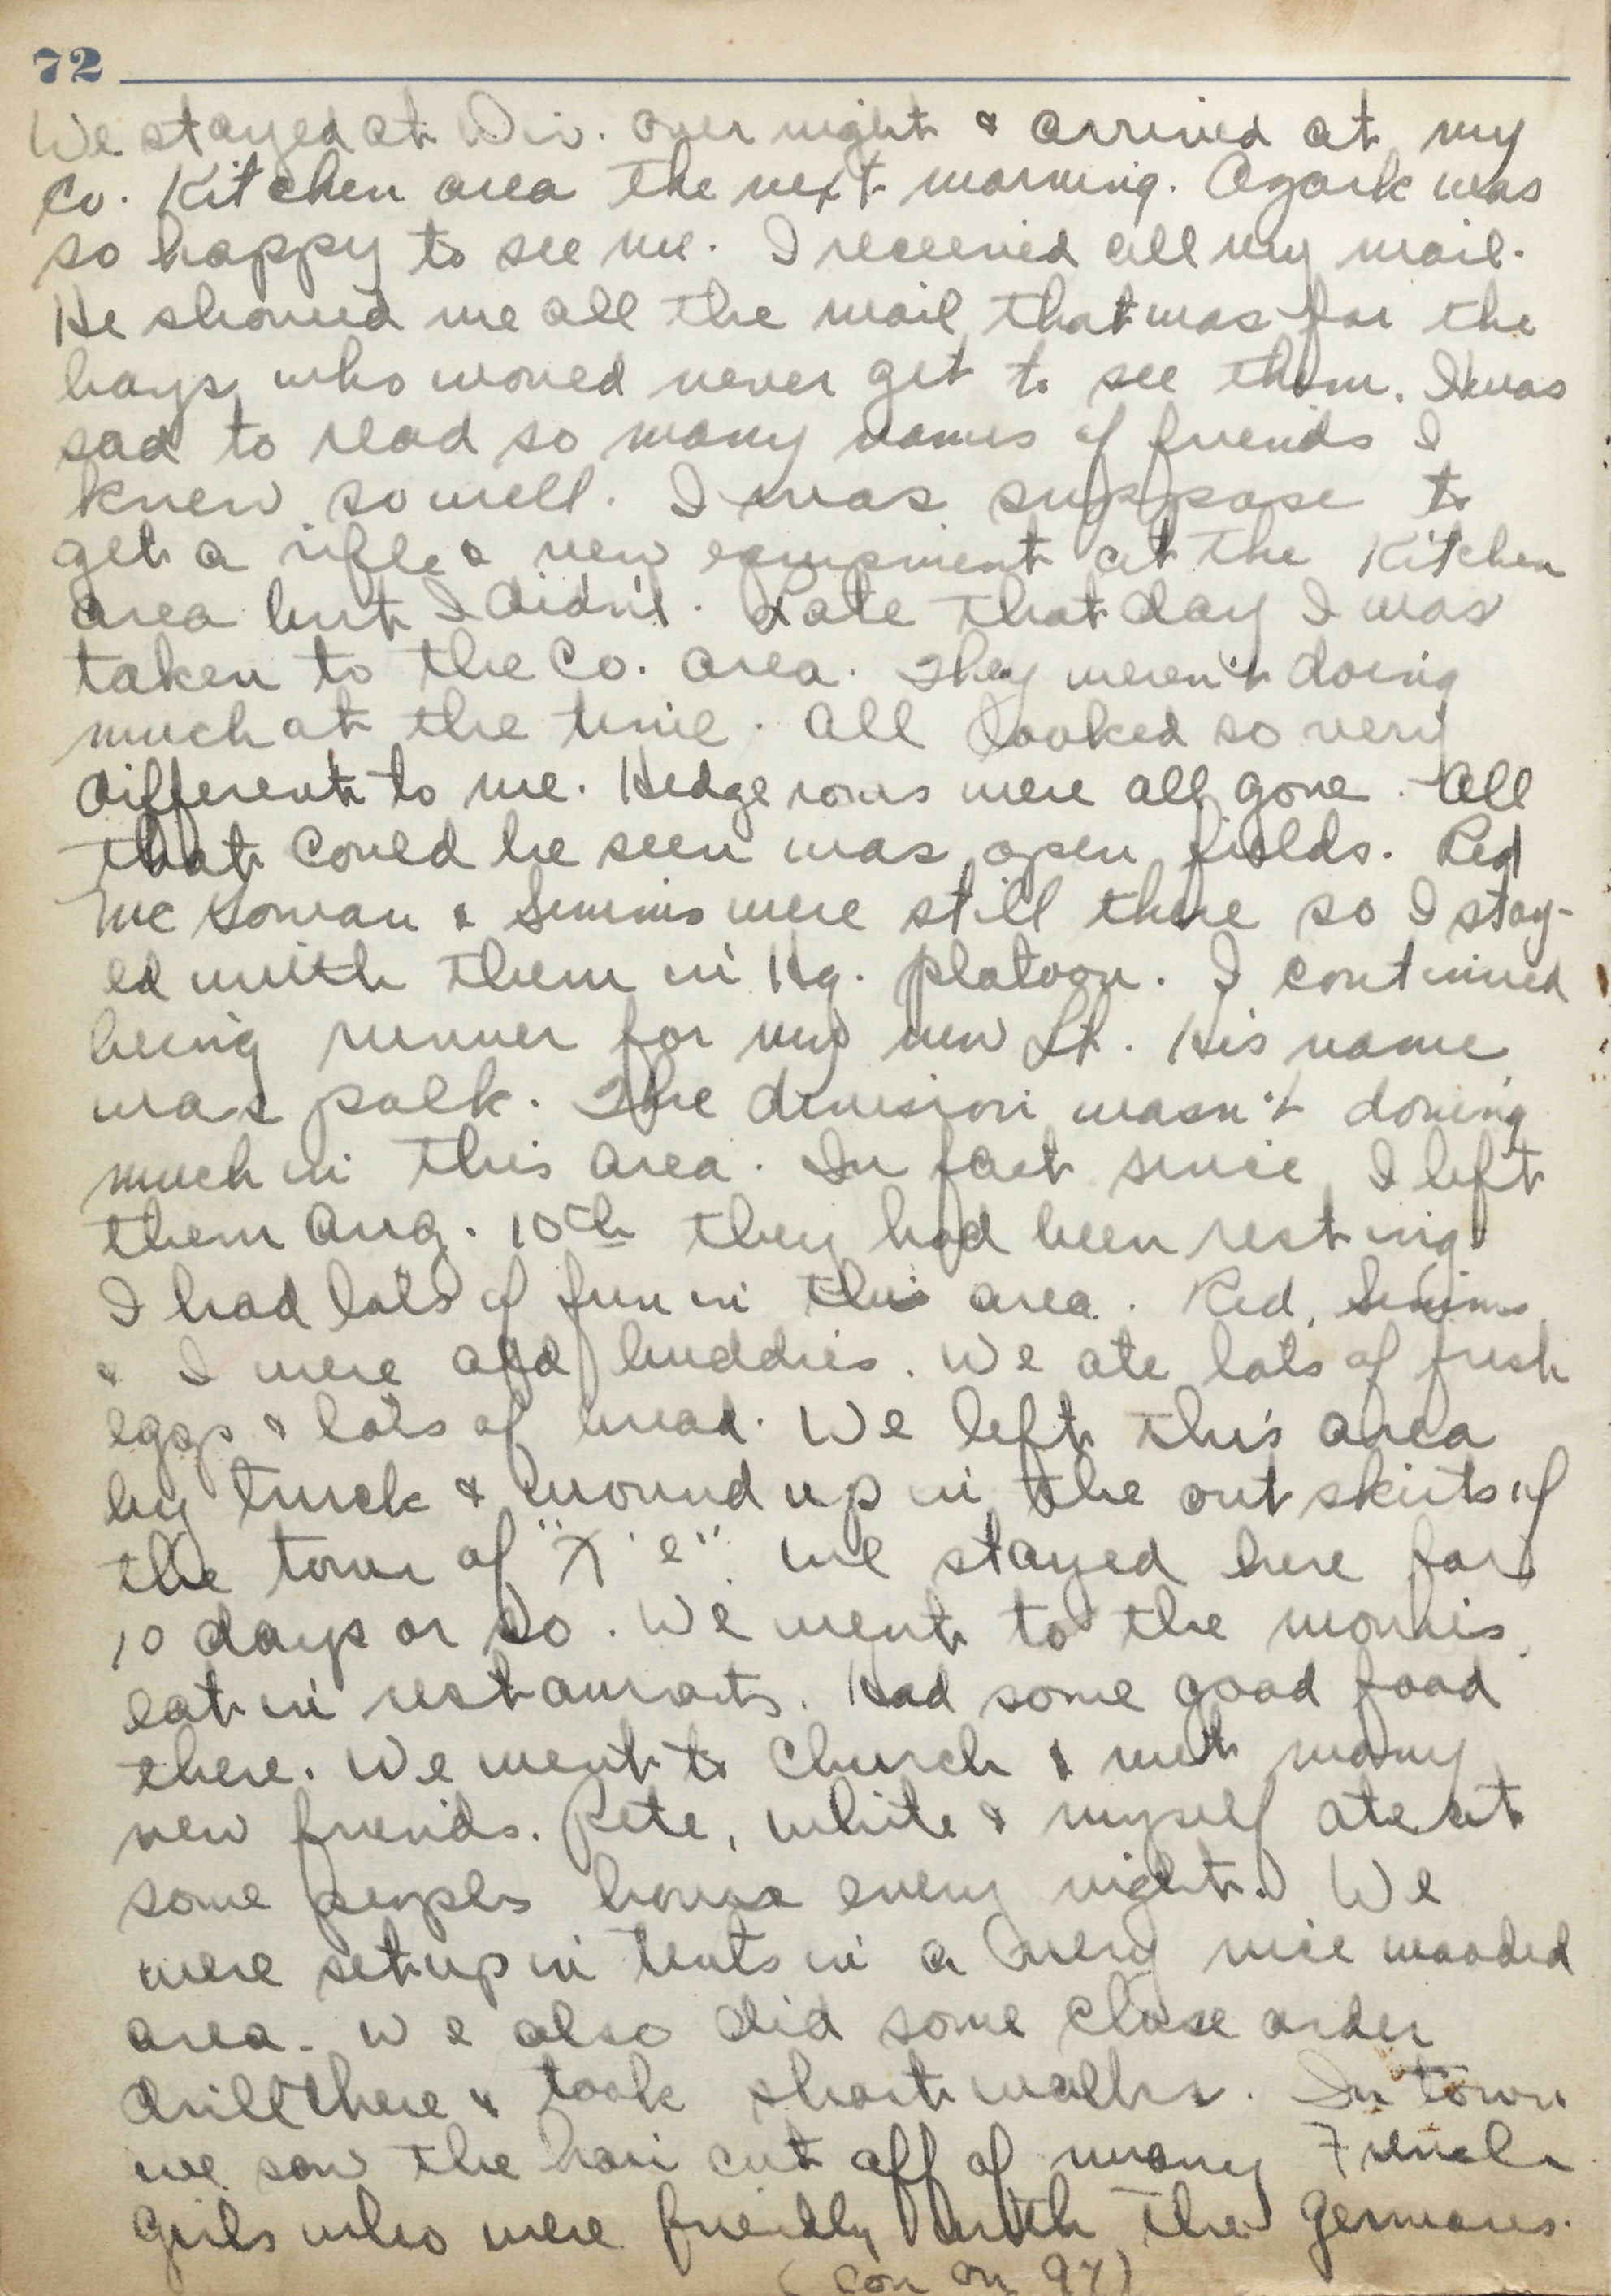 72
We stayed at Div. over night & arrived at my
Co. Kitchen area the next morning. Ozark was
so happy to see me. I received all my mail.
He showed me all the mail that was for the
boys who woued never get to see them. I was
sad to read so many names of friends I
knew so well. I was suppose to
get a rifle & new equipment at the Kitchen
area but I didn't. Late that day I was
taken to the Co. area. They weren't doing
much at the time. All looked so very
different to me. Hedge rows were all gone. All
that coued be seen was open fields. Red
Mc Gowan & Simms were still there so I stay-
ed with them in Hq. platoon. I continued
being runner for my new Lt. His name
was polk. The division wasn't doing
much in this area. In fact since I left
them Aug. 10th they had been resting
I had lots of fun in this area. Red, Simms
& I were old buddies. We ate lots of fresh
eggs & lots of bread. We left this area
by truck & wound up in the out skirts of
the town of "X' e". We stayed here for
10 days or so. We went to the movies
eat in restaurants. Had some good food
there. We went to Church & met many
new friends. Pete, White & myself ate at
some peoples house every night. We
were setup in tents in a very nice wooded
area. We also did some close order
drill there & took short walks. In town
we saw the hair cut off of many French
girls who were friendly with the Germans.
(con on 97)